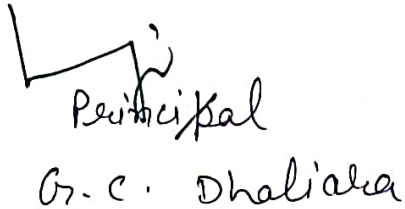 Principal
G. C. Dhaliara